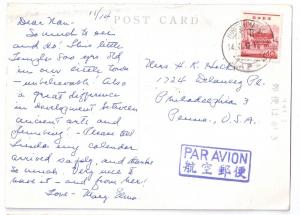 11/14
POST CARD
Dear Nan -
So much to see
and do! This little
temple 700 yrs old
in our little town
- unbelievable! Also
a great difference
in development between
ancient arts and
farming! - Please tell
Linda my calendar
arrived safely, and thanks
so much. Very nice to
have it - and from her!
Love - Mary
Miss H. K.
1724 Delancey Pl.
Philadelphia 3
Penna., U.S.A.
PAR AVION
航空郵便